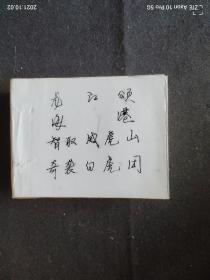 2021.10.02
ZTE Axon 10 Pro 5G
龙江颂
海港
智取威虎山
奇袭白虎团